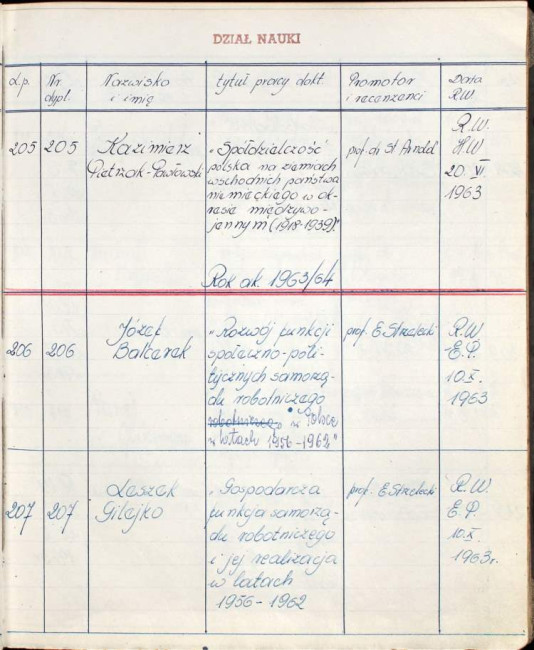 DZIAŁ NAUKI
L.p. Nr. dypl. Nazwisko i imię tytuł pracy dokt. Promotor i recenzenci Data R.W.
205 205 Kazimierz Pietrzak-Pawłowski
"Spółdzielczość
polska na ziemiach
wschodnich państwa
niemieckiego w ok-
resie międzywo-
jennym (1918-1939)."
prof. dr St. Arnold
R.W.
H.W
20. VI.
1963
Rok ak. 1963/64
206 206 Józef Balcerek
"Rozwój funkcji
społeczno-poli-
tycznych samorzą-
du robotniczego
robotniczego w Polsce
w latach 1956-1962"
prof. E. Strzelecki
R.W.
E.P.
10.X.
1963
207 207 Leszek Gilejko
"Gospodarcza
funkcja samorzą-
du robotniczego
i jej realizacja
w latach
1956-1962
prof. E. Strzelecki
R.W.
E.P.
10.X.
1963r.